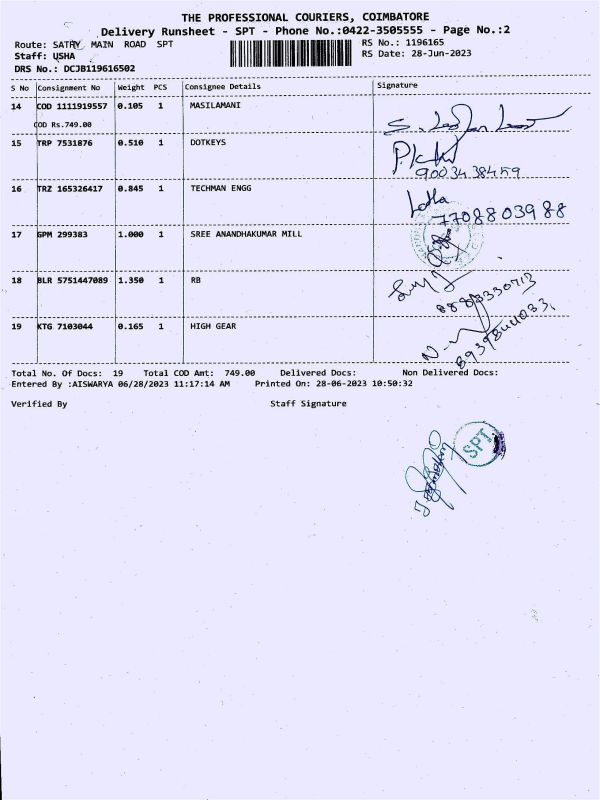 THE PROFESSIONAL COURIERS, COIMBATORE
Delivery Runsheet - SPT - Phone No.:0422-3505555 - Page No.:2
Route: SATHY MAIN ROAD SPT
RS No.: 1196165
Staff: USHA
RS Date: 28-Jun-2023
DRS No.: DCJB119616502
S No Consignment No Weight PCS Consignee Details Signature
14 COD 1111919557 0.105 1 MASILAMANI
COD Rs.749.00
15 TRP 7531876 0.510 1 DOTKEYS
9003438459
16 TRZ 165326417 0.845 1 TECHMAN ENGG
Latha
7708803988
17 GPM 299383 1.000 1 SREE ANANDHAKUMAR MILL
18 BLR 5751447089 1.350 1 RB
19 KTG 7103044 0.165 1 HIGH GEAR
Total No. Of Docs: 19 Total COD Amt: 749.00 Delivered Docs: Non Delivered Docs:
Entered By :AISWARYA 06/28/2023 11:17:14 AM Printed On: 28-06-2023 10:50:32
Verified By Staff Signature
SPT